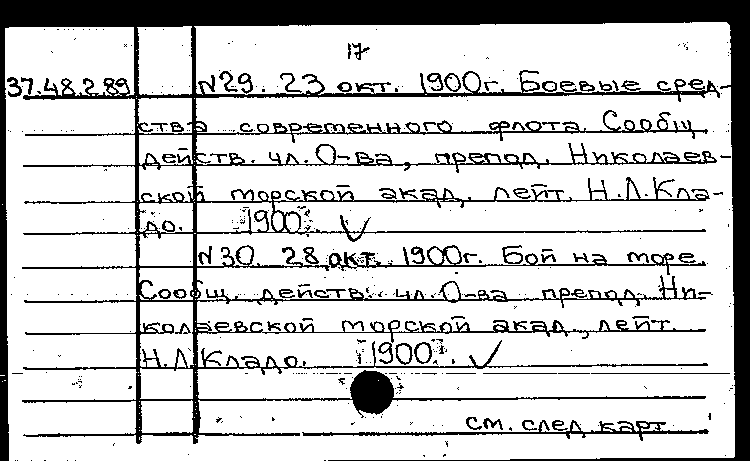 17
37.48.2.89 N29. 23 окт. 1900г. Боевые сред-
ства современного флота. Сообщ.
действ. чл. О-ва, препод. Николаев-
ской морской акад. лейт. Н.Л.Кла-
до. 1900. ✓
N30. 28 окт. 1900г. Бой на море.
Сообщ. действ. чл. О-ва препод. Ни-
колаевской морской акад., лейт.
Н.Л.Кладо. 1900. ✓
см. след. карт